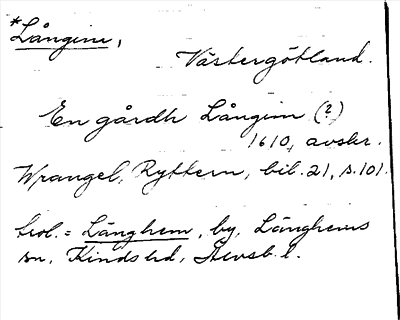 *Långinn,
Västergötland.
En gårdh Långinn (?)
1610, avskr.
Wrangel, Ryttern, bil. 21, s. 101.
trol. = Länghem, by, Länghems
sn, Kinds hd, Älvsb. l.